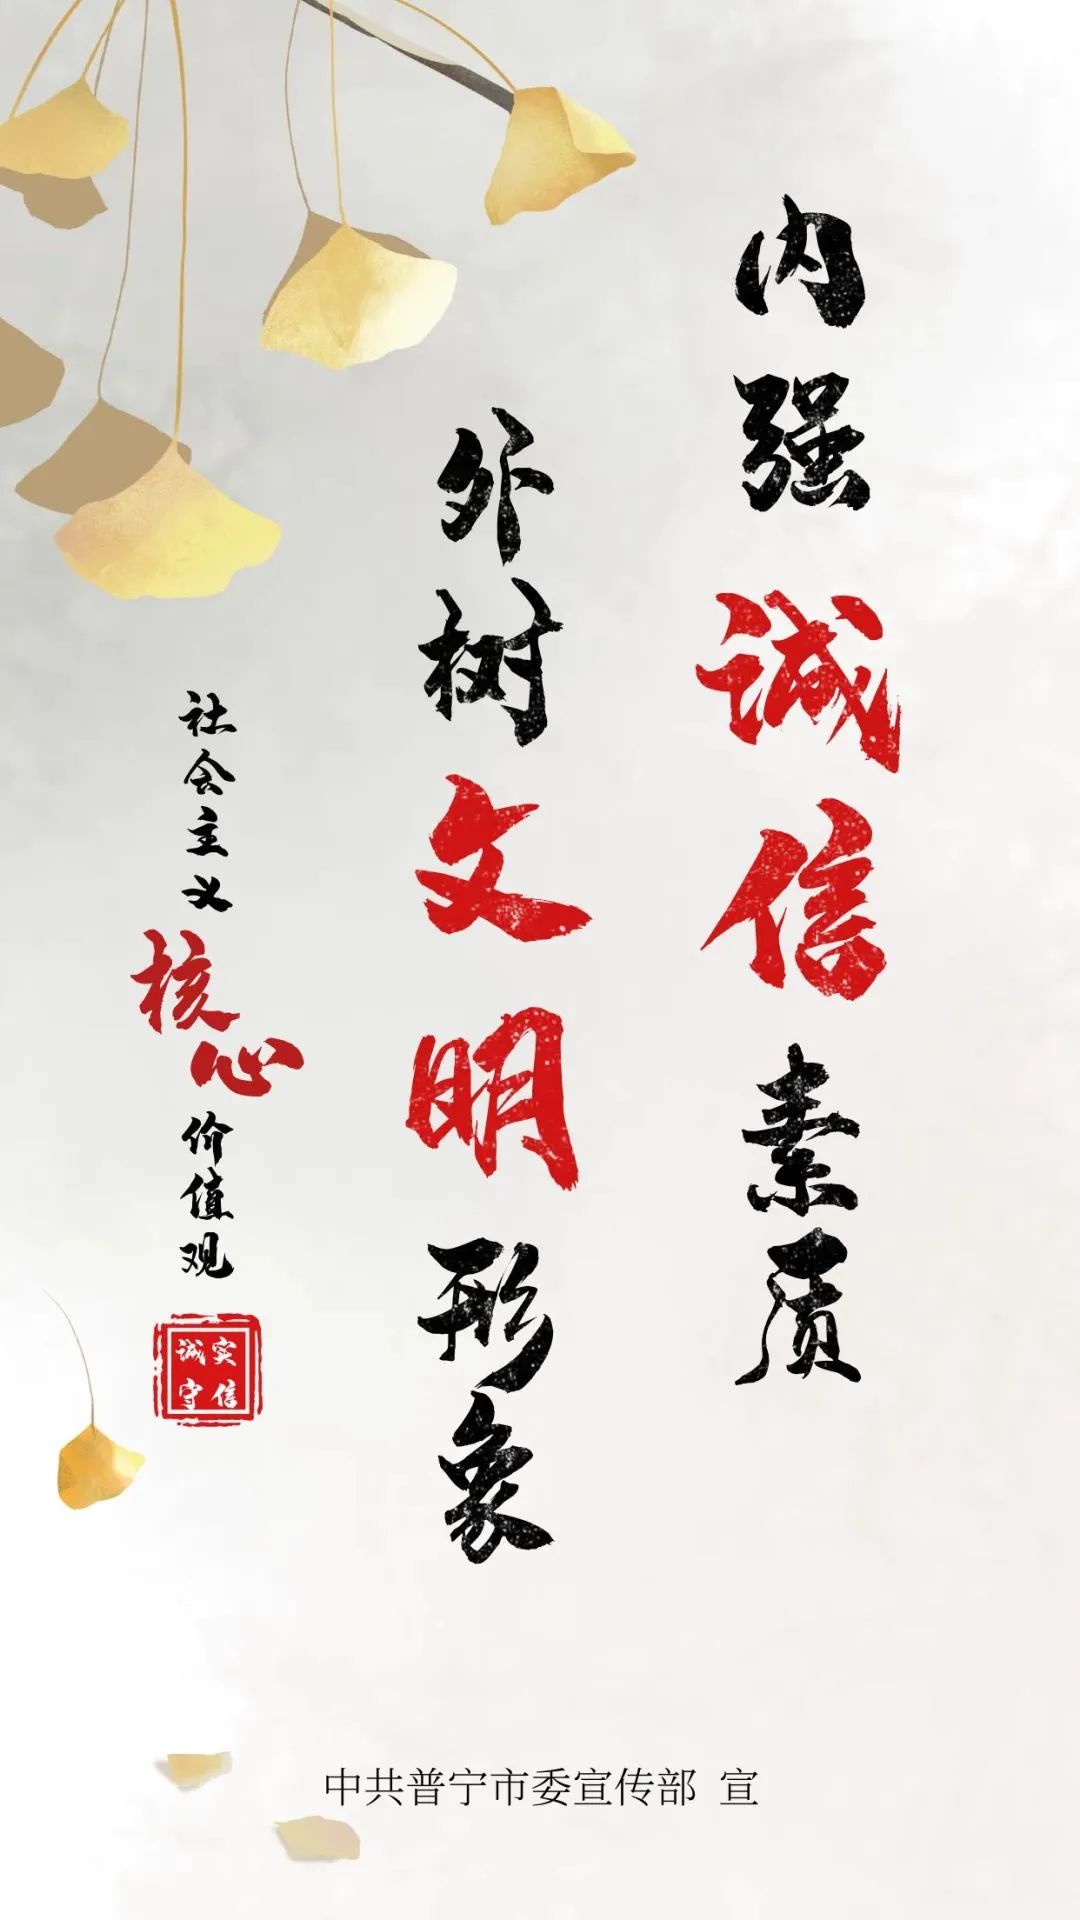 内强诚信素质
外树文明形象
社会主义核心价值观
诚实
守信
中共普宁市委宣传部 宣